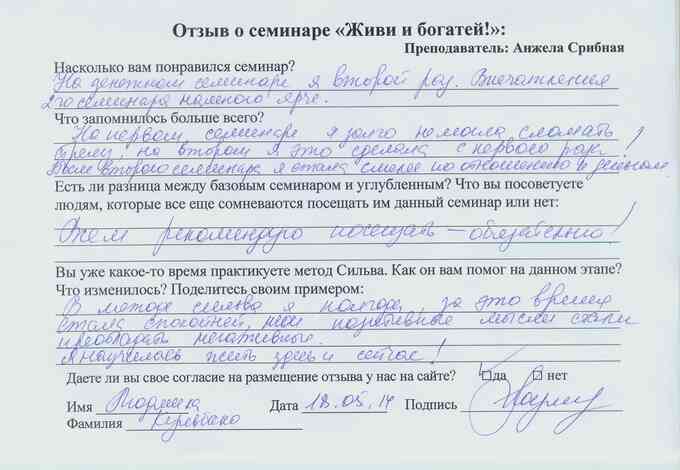 Отзыв о семинаре «Живи и богатей!»:
Преподаватель: Анжела Срибная
Насколько вам понравился семинар?
На денежном семинаре я второй раз. Впечатления
2го семинара намного ярче.
Что запомнилось больше всего?
На первом семинаре я долго не могла сломать
стрелу, на втором я это сделала с первого раза!
После второго семинара я стала смелее по отношению к деньгам.
Есть ли разница между базовым семинаром и углубленным? Что вы посоветуете
людям, которые все еще сомневаются посещать им данный семинар или нет:
Всем рекомендую посещать – обязательно!
Вы уже какое-то время практикуете метод Сильва. Как он вам помог на данном этапе?
Что изменилось? Поделитесь своим примером:
В методе сильва я полгода, за это время
стала спокойней, мои позитивные мысли стали
преобладать негативные.
Я научилась жить здесь и сейчас!
Даете ли вы свое согласие на размещение отзыва у нас на сайте? да нет
Имя Людмила Дата 18.05.14 Подпись
Фамилия